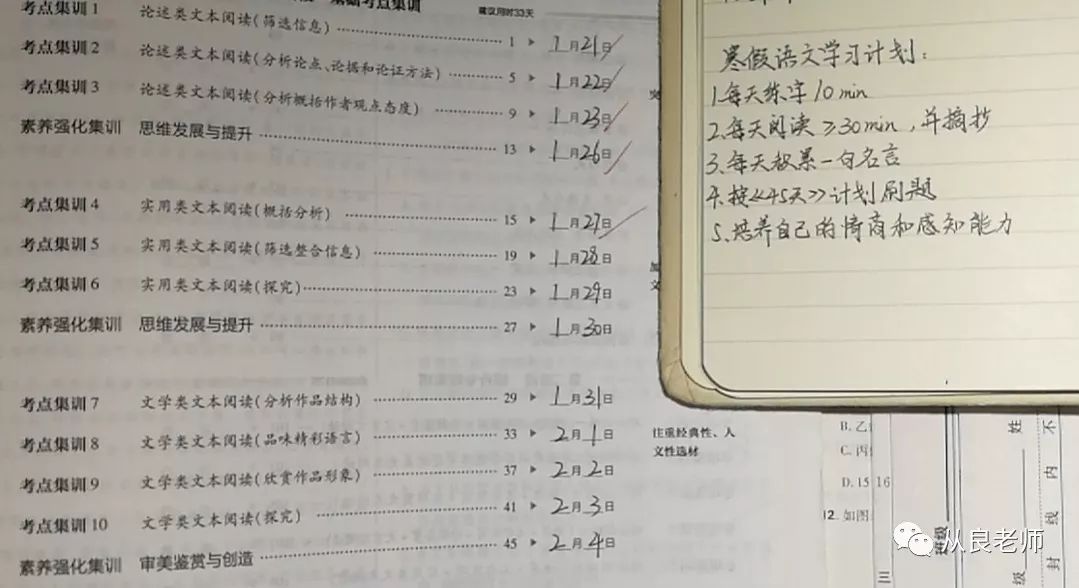 基础考点集训
建议用时33天
考点集训1 论述类文本阅读(筛选信息) 1 ▶ 1月21日
考点集训2 论述类文本阅读(分析论点、论据和论证方法) 5 ▶ 1月22日
考点集训3 论述类文本阅读(分析概括作者观点态度) 9 ▶ 1月23日
素养强化集训 思维发展与提升 13 ▶ 1月26日
考点集训4 实用类文本阅读(概括分析) 15 ▶ 1月27日
考点集训5 实用类文本阅读(筛选整合信息) 19 ▶ 1月28日
考点集训6 实用类文本阅读(探究) 23 ▶ 1月29日
素养强化集训 思维发展与提升 27 ▶ 1月30日
考点集训7 文学类文本阅读(分析作品结构) 29 ▶ 1月31日
考点集训8 文学类文本阅读(品味精彩语言) 33 ▶ 2月1日
考点集训9 文学类文本阅读(欣赏作品形象) 37 ▶ 2月2日
考点集训10 文学类文本阅读(探究) 41 ▶ 2月3日
素养强化集训 审美鉴赏与创造 45 ▶ 2月4日
注重经典性、人
文性选材
寒假语文学习计划:
1.每天练字10min
2.每天阅读≥30min,并摘抄
3.每天积累一句名言
4.按《45天》计划刷题
5.培养自己的情商和感知能力
B.乙
C.丙
D.15 16
12.如图
姓
班级
级
不
内
线
封
从良老师